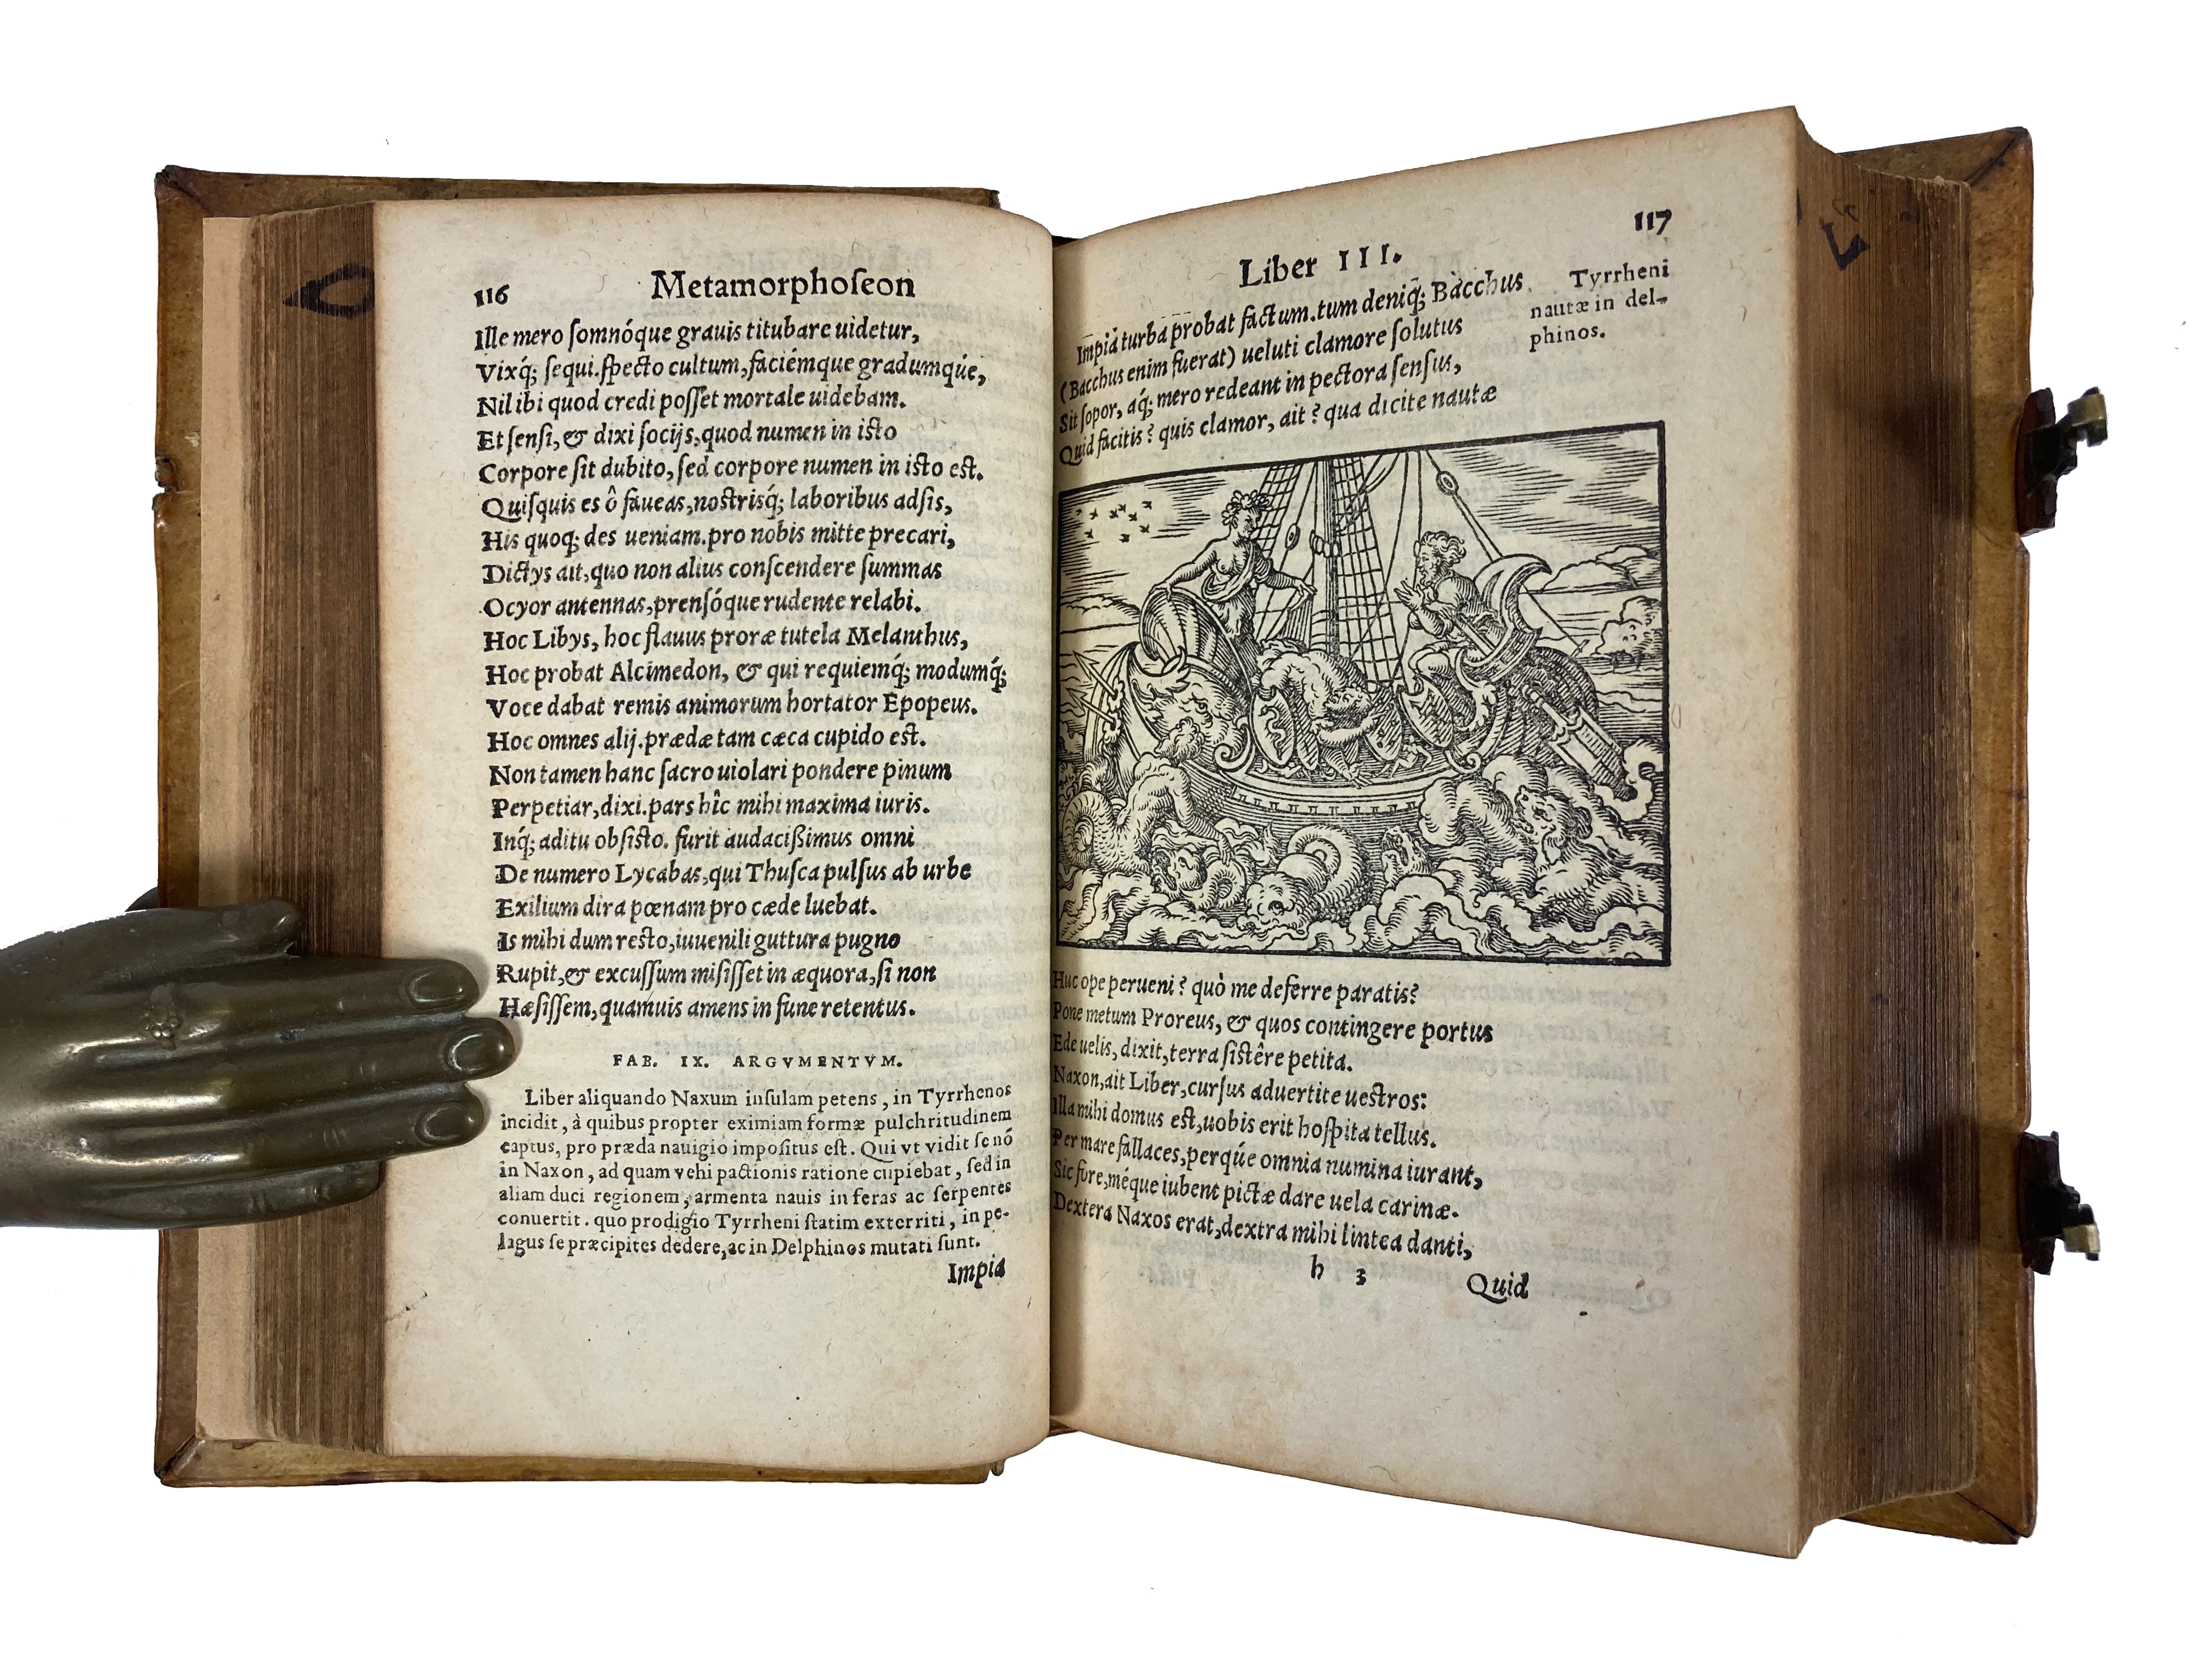 116 Metamorphoſeon
Ille mero ſomnóque grauis titubare uidetur,
Vixq́; ſequi.ſpecto cultum,faciémque gradumqúe,
Nil ibi quod credi poſſet mortale uidebam.
Et ſenſi,& dixi ſocijs,quod numen in iſto
Corpore ſit dubito,ſed corpore numen in iſto eſt.
Quiſquis es ô faueas,nostrisq́; laboribus adſis,
His quoq; des ueniam.pro nobis mitte precari,
Dictys ait,quo non alius conſcendere ſummas
Ocyor antennas,prenſóque rudente relabi.
Hoc Libys, hoc flauus proræ tutela Melanthus,
Hoc probat Alcimedon, & qui requiemq́; modumq́;
Voce dabat remis animorum hortator Epopeus.
Hoc omnes alij.prædæ tam cæca cupido eſt.
Non tamen hanc ſacro uiolari pondere pinum
Perpetiar,dixi.pars hîc mihi maxima iuris.
Inq́; aditu obſiſto. furit audacißimus omni
De numero Lycabas,qui Thuſca pulſus ab urbe
Exilium dira pœnam pro cæde luebat.
Is mihi dum reſto,iuuenili guttura pugno
Rupit,& excuſſum miſiſſet in æquora,ſi non
Hæſiſſem,quamuis amens in fune retentus.
FAB. IX. ARGVMENTVM.
Liber aliquando Naxum inſulam petens, in Tyrrhenos
incidit, à quibus propter eximiam formæ pulchritudinem
captus, pro præda nauigio impoſitus eſt. Qui vt vidit ſe nõ
in Naxon, ad quam vehi pactionis ratione cupiebat, ſed in
aliam duci regionem, armenta nauis in feras ac ſerpentes
conuertit. quo prodigio Tyrrheni ſtatim exterriti, in pe-
lagus ſe præcipites dedere,ac in Delphinos mutati ſunt.
Impia
117
Liber III.
Impia turba probat factum.tum deniq́; Bacchus
(Bacchus enim fuerat) ueluti clamore ſolutus
Sit ſopor, aq́; mero redeant in pectora ſenſus,
Quid facitis? quis clamor, ait? qua dicite nautæ
Tyrrheni
nautæ in del-
phinos.
Huc ope perueni? quò me deferre paratis?
Pone metum Proreus, & quos contingere portus
Ede uelis, dixit,terra ſistêre petita.
Naxon,ait Liber,curſus aduertite uestros:
Illa mihi domus eſt,uobis erit hoſpita tellus.
Per mare fallaces,perqúe omnia numina iurant,
Sic fore,méque iubent pictæ dare uela carinæ.
Dextera Naxos erat,dextra mihi lintea danti,
h 3 Quid